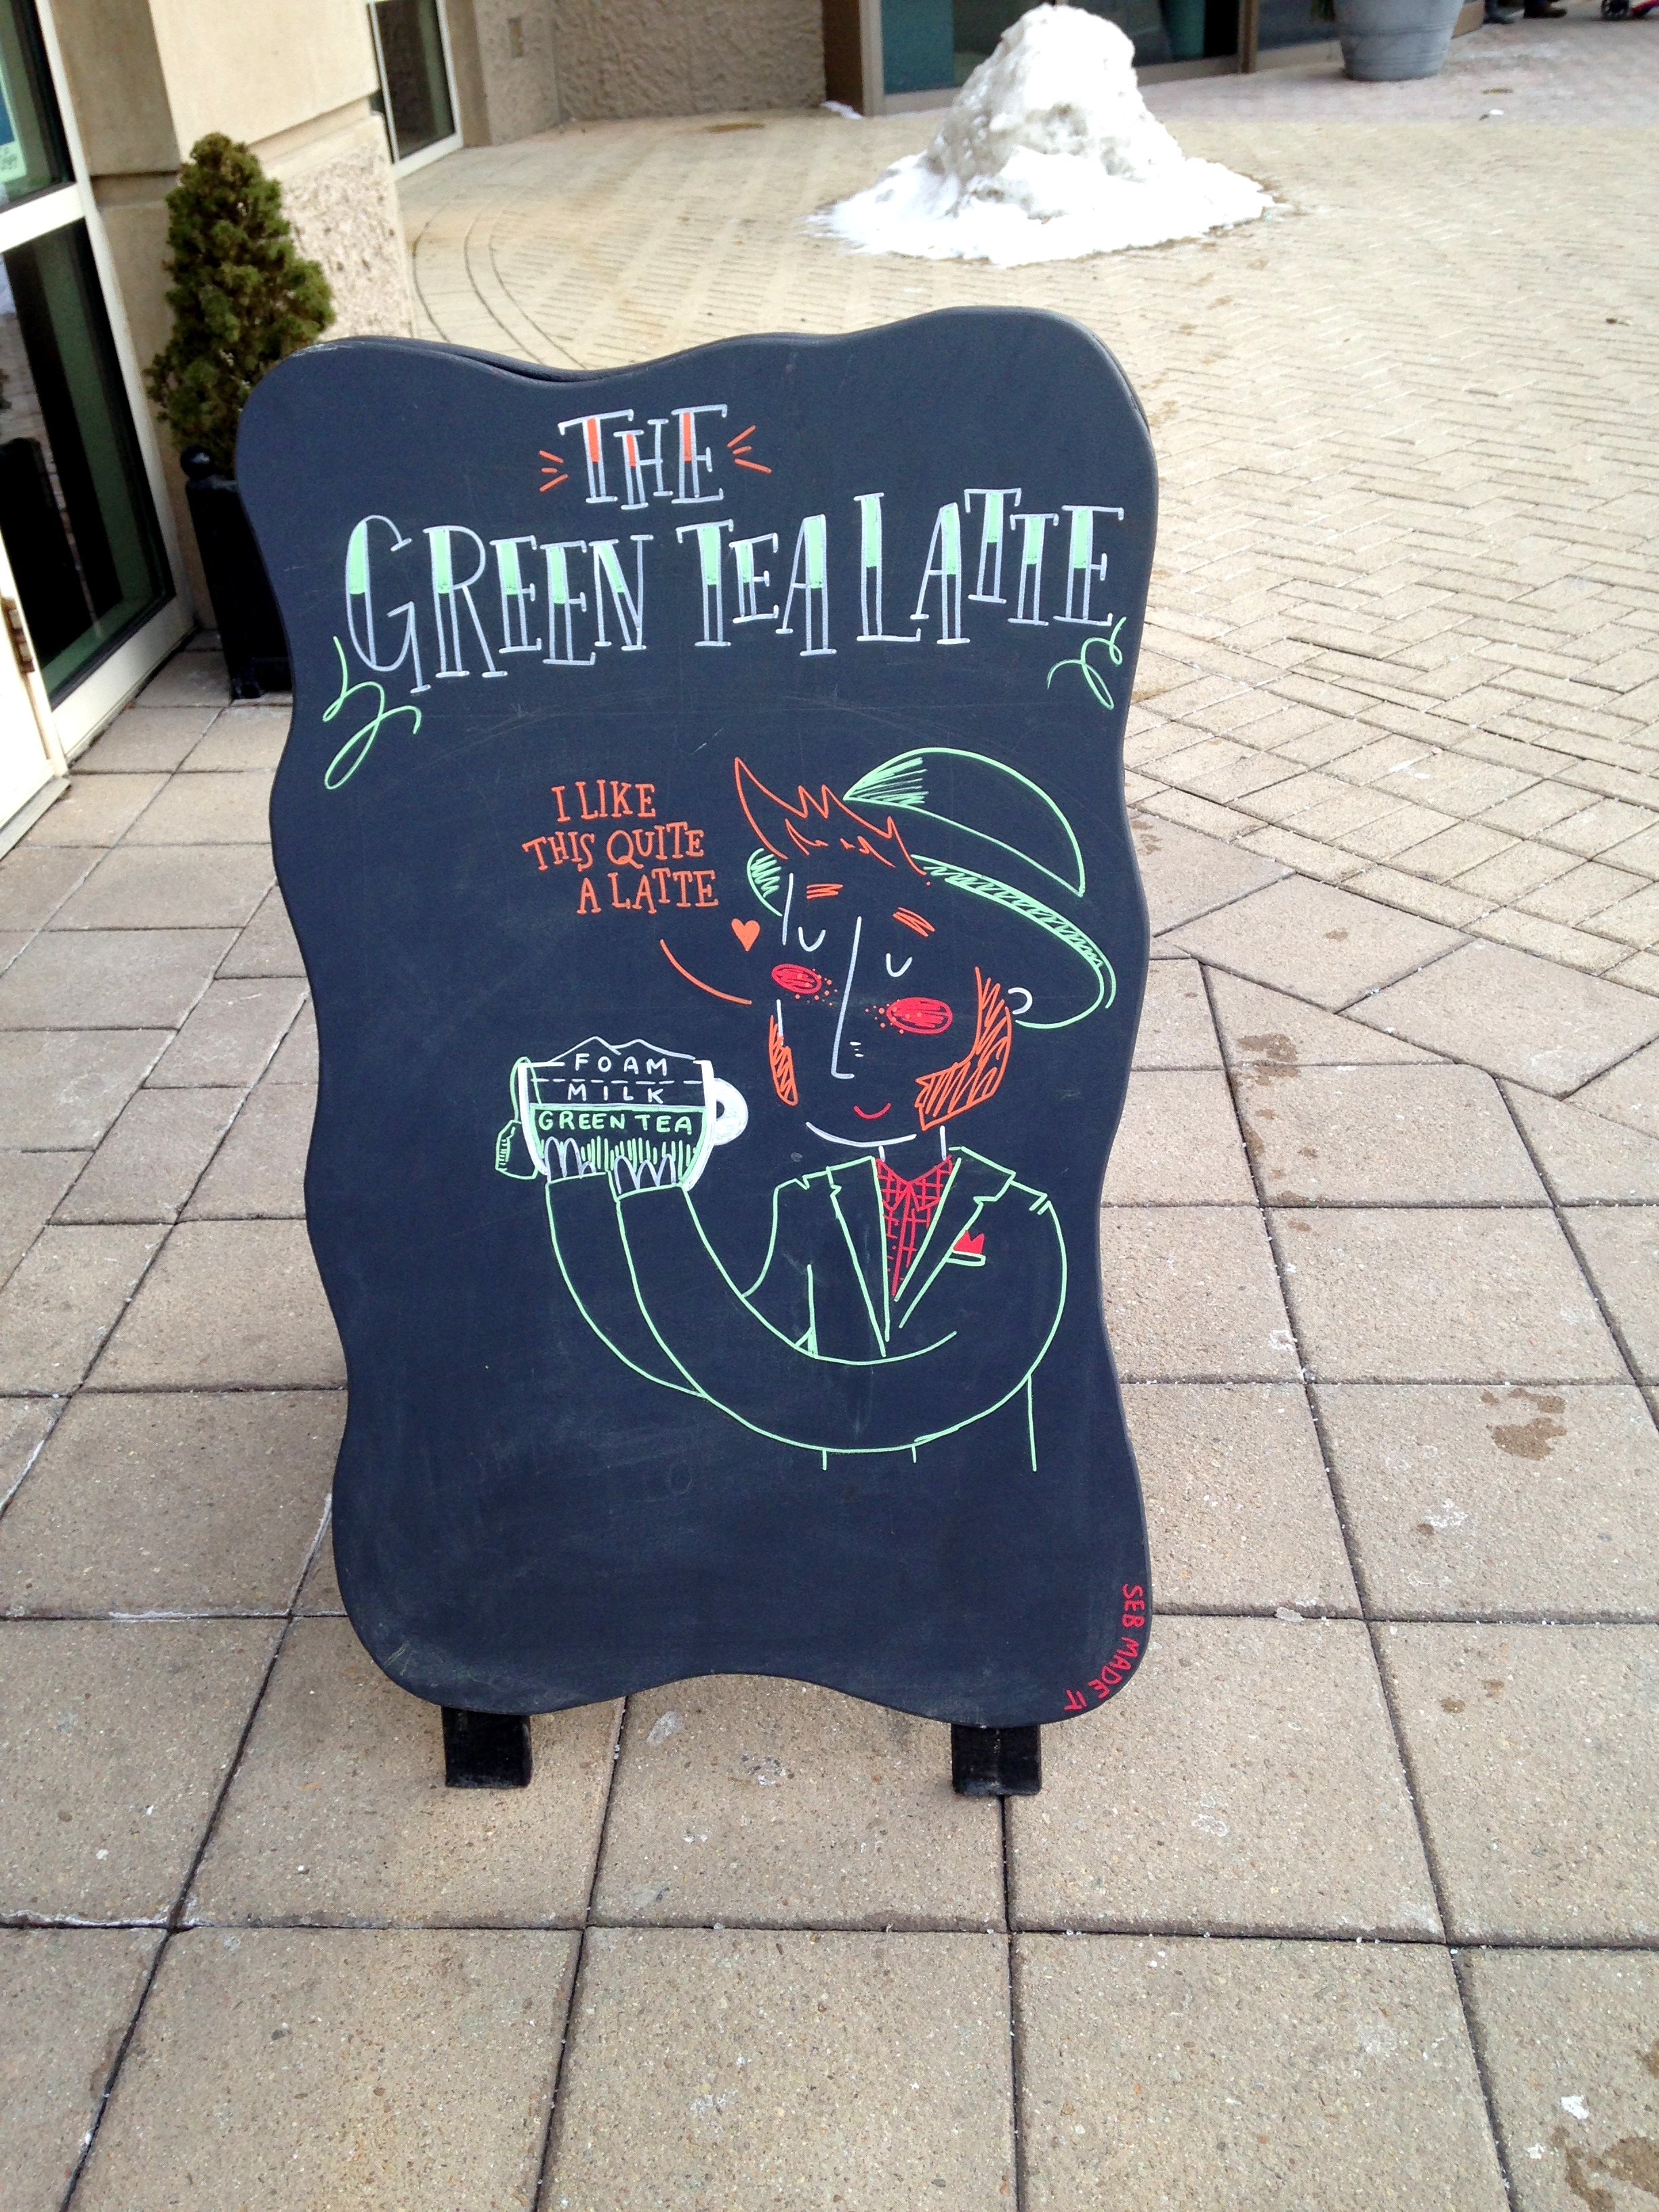 THE
GREEN TEA LATTE
I LIKE
THIS QUITE
A LATTE
FOAM
MILK
GREEN TEA
SEB MADE IT